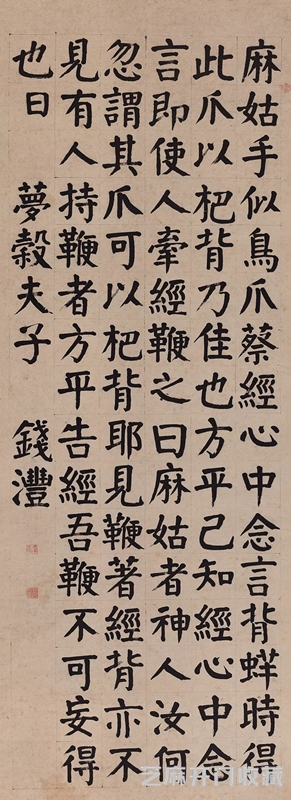 麻姑手似鳥爪蔡經心中念言背蛘時得
此爪以杷背乃佳也方平己知經心中念
言即使人牽經鞭之曰麻姑者神人汝何
忽謂其爪可以杷背耶見鞭著經背亦不
見有人持鞭者方平告經吾鞭不可妄得
也曰 夢穀夫子 錢灃
芝麻开门收藏